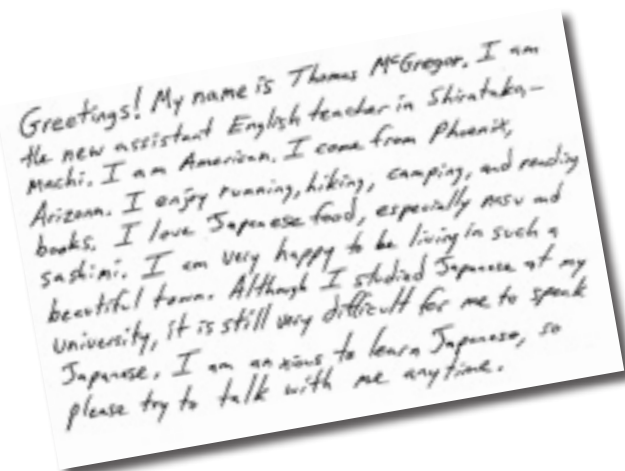 Greetings! My name is Thomas McGregor. I am
the new assistant English teacher in Shirataka-
machi. I am American. I come from Phoenix,
Arizona. I enjoy running, hiking, camping, and reading
books. I love Japanese food, especially nasu and
sashimi. I am very happy to be living in such a
beautiful town. Although I studied Japanese at my
university, it is still very difficult for me to speak
Japanese. I am anxious to learn Japanese, so
please try to talk with me anytime.